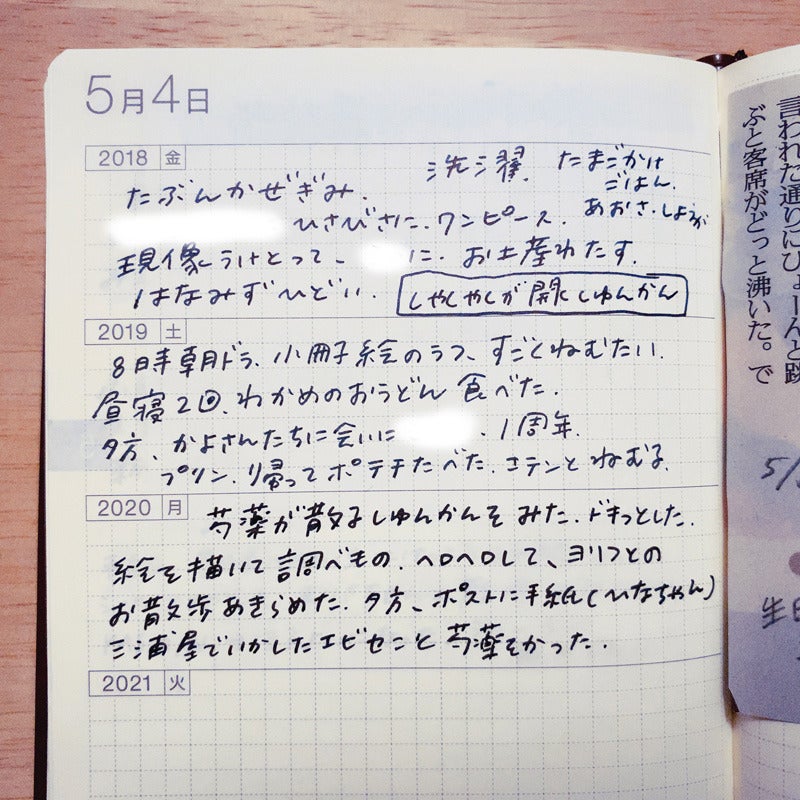 5月4日
2018 金
洗濯. たまごかけ
ごはん.
あおさ.しょうが
たぶんかぜぎみ.
ひさびさに.ワンピース.
現像うけとって、 に.お土産わたす.
はなみずひどい. しゃくやくが開くしゅんかん
2019 土
8時朝ドラ、小冊子絵のラフ、すごくねむたい.
昼寝2回、わかめのおうどん食べた.
夕方、かよさんたちに会いに .1周年.
プリン.帰ってポテチたべた.コテンとねむる.
2020 月
芍薬が散るしゅんかんをみた.ドキっとした.
絵を描いて調べもの.ヘロヘロして、ヨリフとの
お散歩あきらめた.夕方、ポストに手紙(ひなちゃん)
三浦屋でいかしたエビせんこと芍薬をかった.
2021 火
言われた通りにぴょーんと跳
ぶと客席がどっと沸いた。で
5/
生日